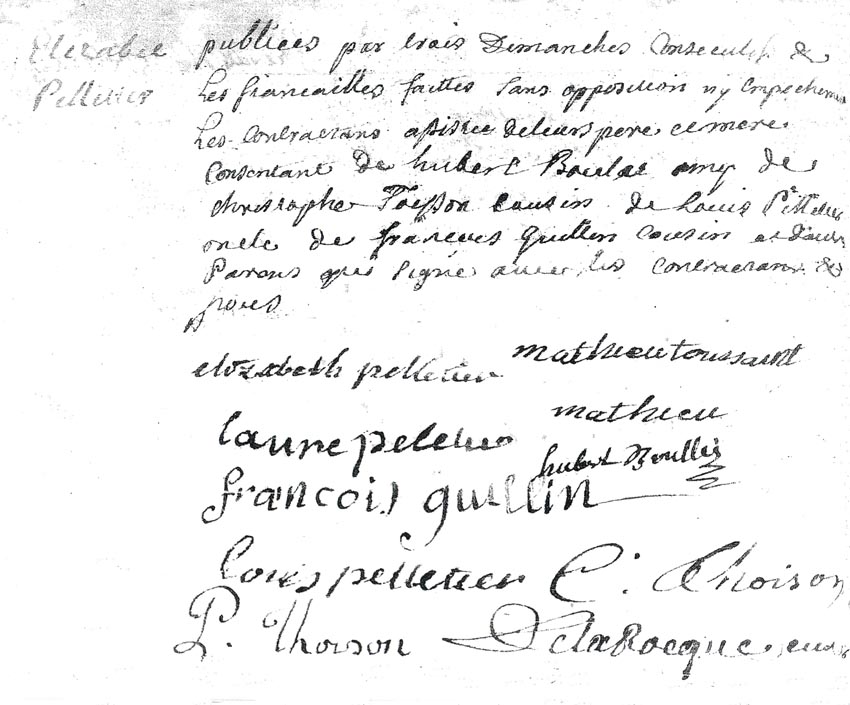 Elizabet
Pelletier
publiees par trois Dimanches Consecutifs &
les fiancailles faittes sans opposition ny Empechem
les Contractans assistee deleurs pere et mere
Consentant De hubert Boulet amy de
christophe Toisson Cousin de Louis Pelletier
oncle de francois Guillin Cousin et Dautres
Parens qui signé avec les Contractans &
peres
elizabeth pelletier mathieu toussaint
laure pelletier mathieu
hubert Boullet
francois guillin
Louis pelletier C. Thoison
P. Thoison DelaRocque curé